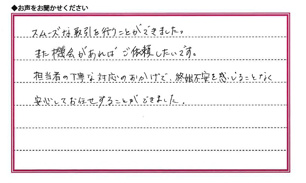 ●お声をお聞かせください
スムーズな取引を行うことができました。
また機会があればご依頼したいです。
担当者の丁寧な対応のおかげで、終始不安を感じることなく
安心してお任せすることができました。